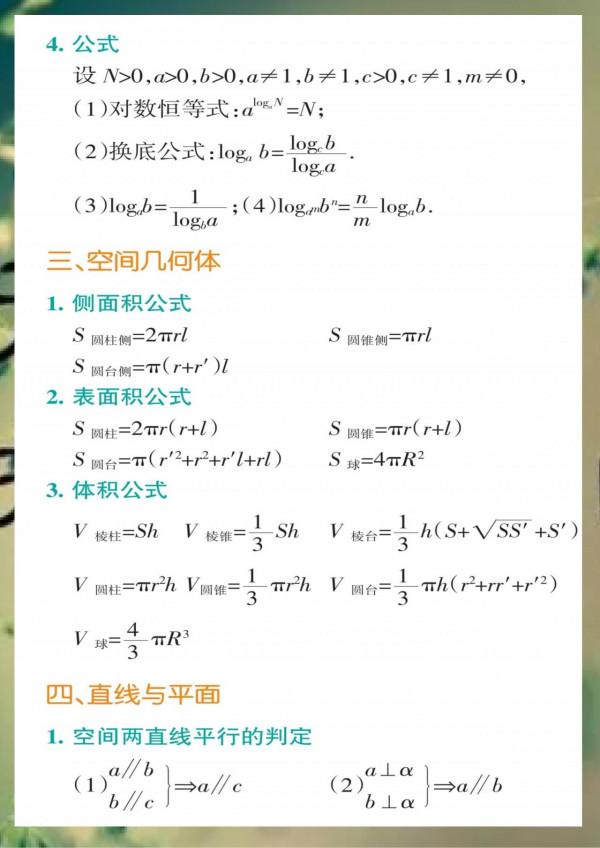 4. 公式
设 N>0,a>0,b>0,a≠1,b≠1,c>0,c≠1,m≠0,
(1)对数恒等式:a^{logₐN}=N;
(2)换底公式:logₐ b=\frac{log_c b}{log_c a}.
(3)logₐb=\frac{1}{log_b a};(4)log_{a^m}b^n=\frac{n}{m}logₐb.
三、空间几何体
1. 侧面积公式
S 圆柱侧=2πrl S 圆锥侧=πrl
S 圆台侧=π(r+r′)l
2. 表面积公式
S 圆柱=2πr(r+l) S 圆锥=πr(r+l)
S 圆台=π(r′²+r²+r′l+rl) S 球=4πR²
3. 体积公式
V 棱柱=Sh V 棱锥=\frac{1}{3}Sh V 棱台=\frac{1}{3}h(S+√SS′+S′)
V 圆柱=πr²h V圆锥=\frac{1}{3}πr²h V 圆台=\frac{1}{3}πh(r²+rr′+r′²)
V 球=\frac{4}{3}πR³
四、直线与平面
1. 空间两直线平行的判定
(1) a∥b b∥c }⇒a∥c (2) a⊥α b⊥α }⇒a∥b